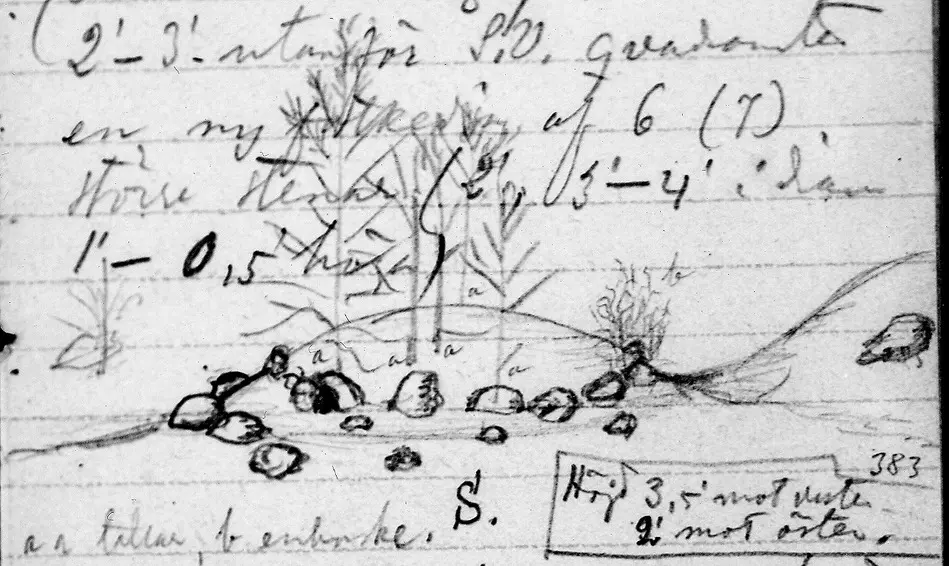 (2'-3' utanför S.V. qvadranten
en ny fotkedja af 6 (7)
större stenar (2', 3'-4' i diam
1'-0,5' höga)
a
b
a a a
a
383
S.
Höjd 3,5' mot vester
2' mot öster.
a a tallar, b enbuske.